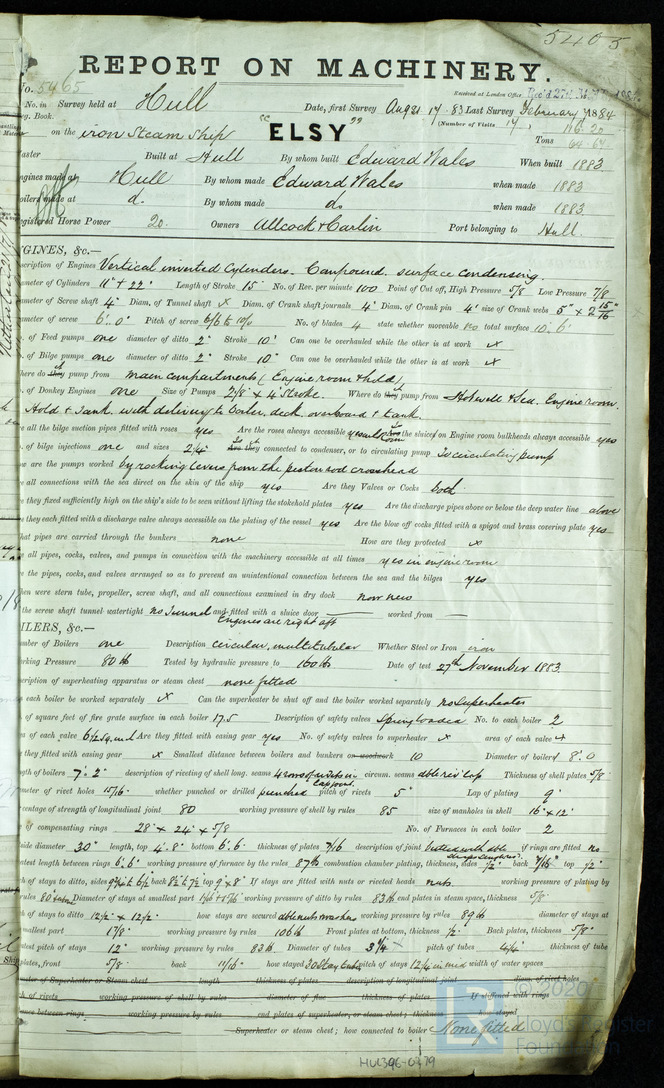 5405
REPORT ON MACHINERY.
No. 5465
Received at London Office
No. in Survey held at Hull Date, first Survey Aug 21 17. 83 Last Survey February 1884
Reg. Book. (Number of Visits 17)
on the iron Steam Ship "ELSY" Tons
Master Built at Hull By whom built Edward Wales When built 1883
Engines made at Hull By whom made Edward Wales when made 1883
Boilers made at do. By whom made do. when made 1883
Registered Horse Power 20. Owners Allcock & Carlin Port belonging to Hull.
ENGINES, &c.—
Description of Engines Vertical inverted Cylinders. Compound. surface condensing.
Diameter of Cylinders 11" + 22" Length of Stroke 15" No. of Rev. per minute 100 Point of Cut off, High Pressure 5/8 Low Pressure 7/8
Diameter of Screw shaft 4" Diam. of Tunnel shaft x Diam. of Crank shaft journals 4" Diam. of Crank pin 4" size of Crank webs 5" x 2 15/16"
Diameter of screw 6'. 0" Pitch of screw 6/6 to 10/0 No. of blades 4 state whether moveable no total surface 10. 6'
No. of Feed pumps one diameter of ditto 2" Stroke 10" Can one be overhauled while the other is at work x
No. of Bilge pumps one diameter of ditto 2" Stroke 10" Can one be overhauled while the other is at work x
Where do they pump from main compartments (Engine room & hold)
No. of Donkey Engines one Size of Pumps 2 1/8" x 4" Stroke. Where do they pump from Hotwell & Sea. Engine room.
Hold & Tank with delivery to boiler, deck overboard & tank
Are all the bilge suction pipes fitted with roses yes Are the roses always accessible yes Are the sluices on Engine room bulkheads always accessible yes
No. of bilge injections one and sizes 2 1/4" Are they connected to condenser, or to circulating pump To circulating pump
How are the pumps worked by rocking levers from the piston rod crosshead
Are all connections with the sea direct on the skin of the ship yes Are they Valves or Cocks both
Are they fixed sufficiently high on the ship's side to be seen without lifting the stokehold plates yes Are the discharge pipes above or below the deep water line above
Are they each fitted with a discharge valve always accessible on the plating of the vessel yes Are the blow off cocks fitted with a spigot and brass covering plate yes
What pipes are carried through the bunkers none How are they protected x
Are all pipes, cocks, valves, and pumps in connection with the machinery accessible at all times yes in engine room
Are the pipes, cocks, and valves arranged so as to prevent an unintentional connection between the sea and the bilges yes
When were stern tube, propeller, screw shaft, and all connections examined in dry dock now new
Is the screw shaft tunnel watertight no Tunnel and fitted with a sluice door — worked from —
Engines are right aft
BOILERS, &c.—
Number of Boilers one Description circular, multitubular Whether Steel or Iron iron
Working Pressure 80 lb Tested by hydraulic pressure to 160 lb Date of test 27th November 1883.
Description of superheating apparatus or steam chest none fitted
Can each boiler be worked separately x Can the superheater be shut off and the boiler worked separately no Superheater
No. of square feet of fire grate surface in each boiler 17.5 Description of safety valves Spring loaded No. to each boiler 2
Area of each valve Are they fitted with easing gear yes No. of safety valves to superheater x area of each valve x
Are they fitted with easing gear x Smallest distance between boilers and bunkers or woodwork 10 Diameter of boilers 8'. 0
Length of boilers 7'. 2" description of riveting of shell long. seams 4 rows of rivets in lap joint. circum. seams dble riv lap Thickness of shell plates 5/8"
Diameter of rivet holes 15/16. whether punched or drilled punched pitch of rivets 5" Lap of plating 9"
Percentage of strength of longitudinal joint 80 working pressure of shell by rules 85 size of manholes in shell 16" x 12"
Size of compensating rings 28" x 24" x 5/8 No. of Furnaces in each boiler 2
Outside diameter 30" length, top 4'. 8" bottom 6'. 6" thickness of plates 7/16 description of joint butted with dble straps if rings are fitted no
Greatest length between rings 6'. 6" working pressure of furnace by the rules 87 lb combustion chamber plating, thickness, sides 1/2" back 7/16" top 1/2"
Pitch of stays to ditto, sides back 8 1/2" x 7 1/2 top 9" x 8" If stays are fitted with nuts or riveted heads nuts. working pressure of plating by
rules 80 Diameter of stays at smallest part working pressure of ditto by rules 83 lb end plates in steam space, thickness 5/8"
Pitch of stays to ditto 12 1/2" x 12 1/2" how stays are secured dble nuts washers working pressure by rules 89 lb diameter of stays at
smallest part 1 7/8" working pressure by rules 106 lb Front plates at bottom, thickness 1/2" Back plates, thickness 5/8"
Greatest pitch of stays 12" working pressure by rules 83 lb. Diameter of tubes 3 1/4" pitch of tubes 4 1/4" thickness of tube
plates, front 5/8" back 11/16" how stayed 30 Stay tubes pitch of stays width of water spaces
Diameter of Superheater or Steam chest length thickness of plates description of longitudinal joint diam. of rivet holes
Pitch of rivets working pressure of shell by rules diameter of flue thickness of plates If stiffened with rings
Distance between rings working pressure by rules end plates of superheater, or steam chest; thickness how stayed
Superheater or steam chest; how connected to boiler None fitted
© 2020
Lloyd's Register
Foundation
HUL396-0379